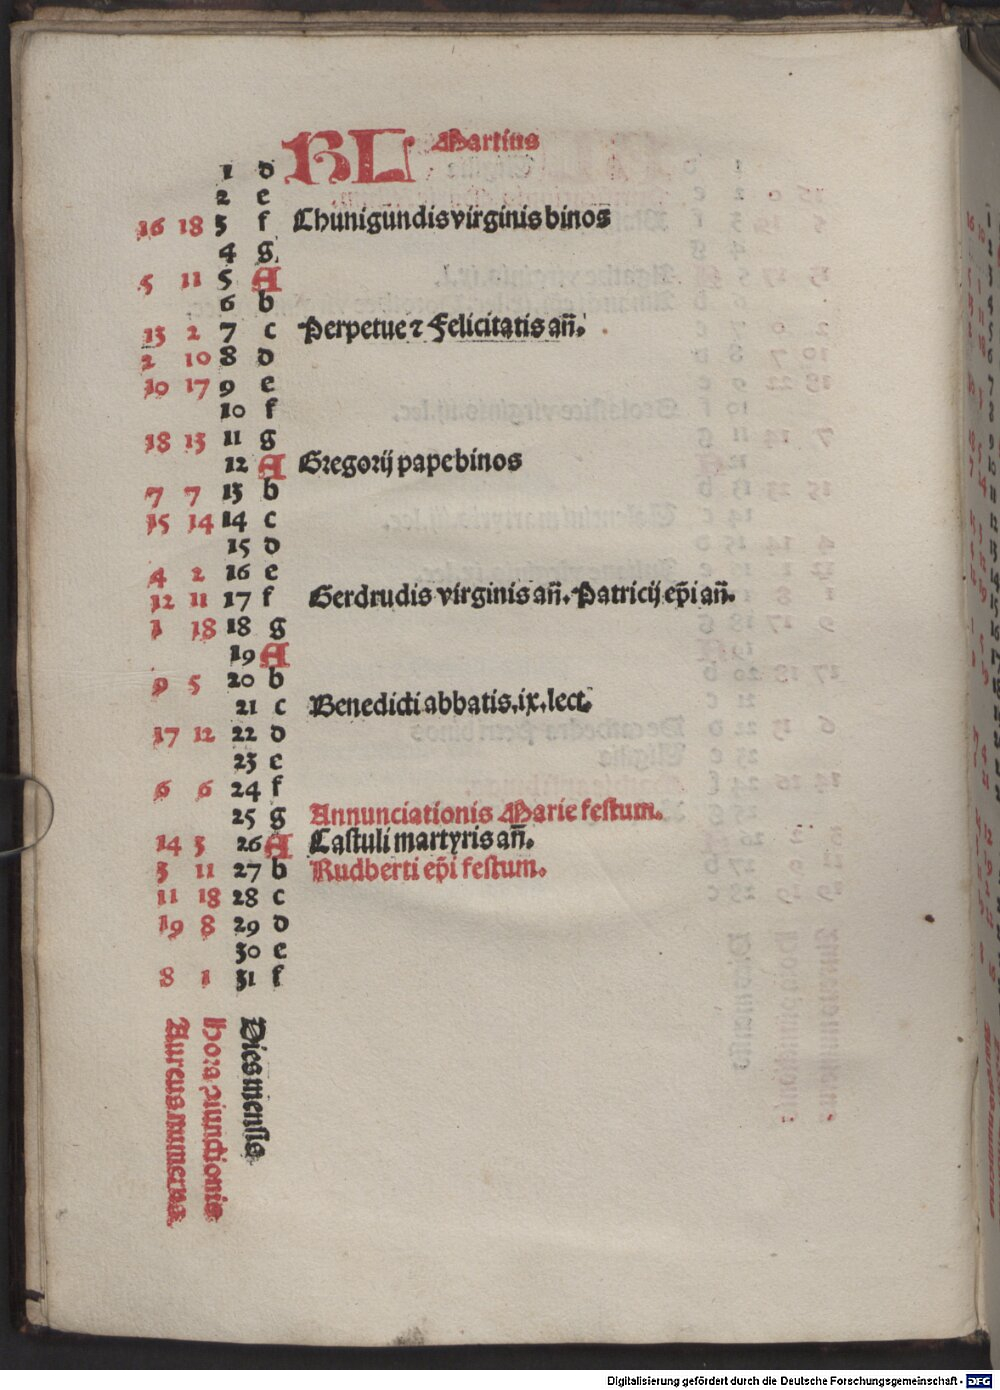 KL Martius
1 d
2 e
16 18 3 f Chunigundis virginis binos
4 g
5 11 5 A
6 b
13 2 7 c Perpetue ⁊ Felicitatis añ.
2 10 8 d
10 17 9 e
10 f
18 13 11 g
12 A Gregorij pape binos
7 7 13 b
15 14 14 c
15 d
4 2 16 e
12 11 17 f Gerdrudis virginis añ. Patricij ep̃i añ.
1 18 18 g
19 A
9 5 20 b
21 c Benedicti abbatis .ix. lect.
17 12 22 d
23 e
6 6 24 f
25 g Annunciationis Marie festum.
14 3 26 A Castuli martyris añ.
3 11 27 b Rudberti ep̃i festum.
11 18 28 c
19 8 29 d
30 e
8 1 31 f
Dies mensis
Hora ꝯiunctionis
Aureus numerus
Digitalisierung gefördert durch die Deutsche Forschungsgemeinschaft - DFG